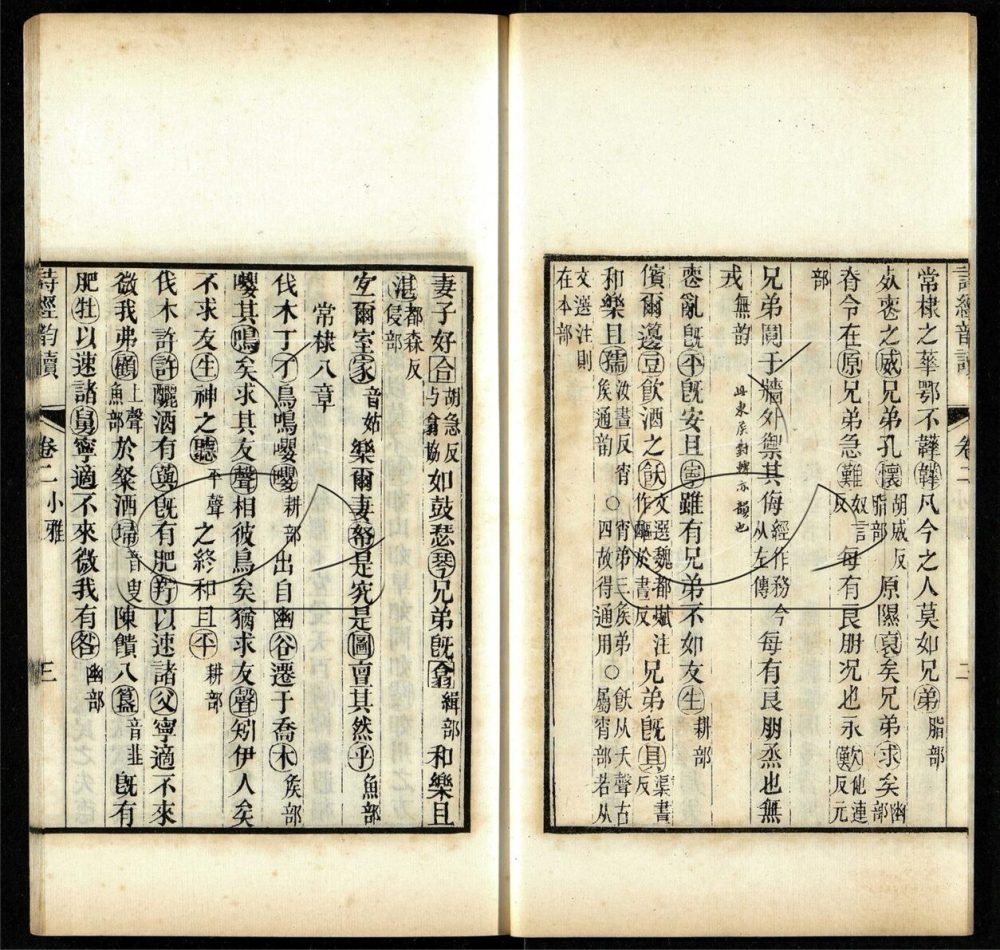 常棣之華鄂不韡韡凡今之人莫如兄弟脂部
死喪之威兄弟孔懷胡威反脂部原隰裒矣兄弟求矣幽部
脊令在原兄弟急難奴言反每有良朋况也永歎他連反元
部
兄弟鬩于牆外禦其侮經作務从左傳今每有良朋烝也無
戎無韵
喪亂旣平旣安且寧雖有兄弟不如友生耕部
儐爾籩豆飲酒之飫文選魏都賦注作醧於書反兄弟旣具渠書反
和樂且孺汝晝反宵矦通韵○宵弟三矦弟四故得通用○飫从夭聲古屬宵部若从
文選注則在本部
詩經韵讀 卷二 小雅 二
妻子好合胡急反与翕協如鼓瑟琴兄弟旣翕緝部和樂且
湛都森反侵部
宜爾室家音姑樂爾妻帑是究是圖亶其然乎魚部
常棣八章
伐木丁丁鳥鳴嚶嚶耕部出自幽谷遷于喬木矦部
嚶其鳴矣求其友聲相彼鳥矣猶求友聲矧伊人矣
不求友生神之聽平聲之終和且平耕部
伐木許許釃酒有藇旣有肥羜以速諸父寧適不來
微我弗顧上聲魚部於粲洒埽音叟陳饋八簋音韭旣有
肥牡以速諸舅寧適不來微我有咎幽部
詩經韵讀 卷二 小雅 三